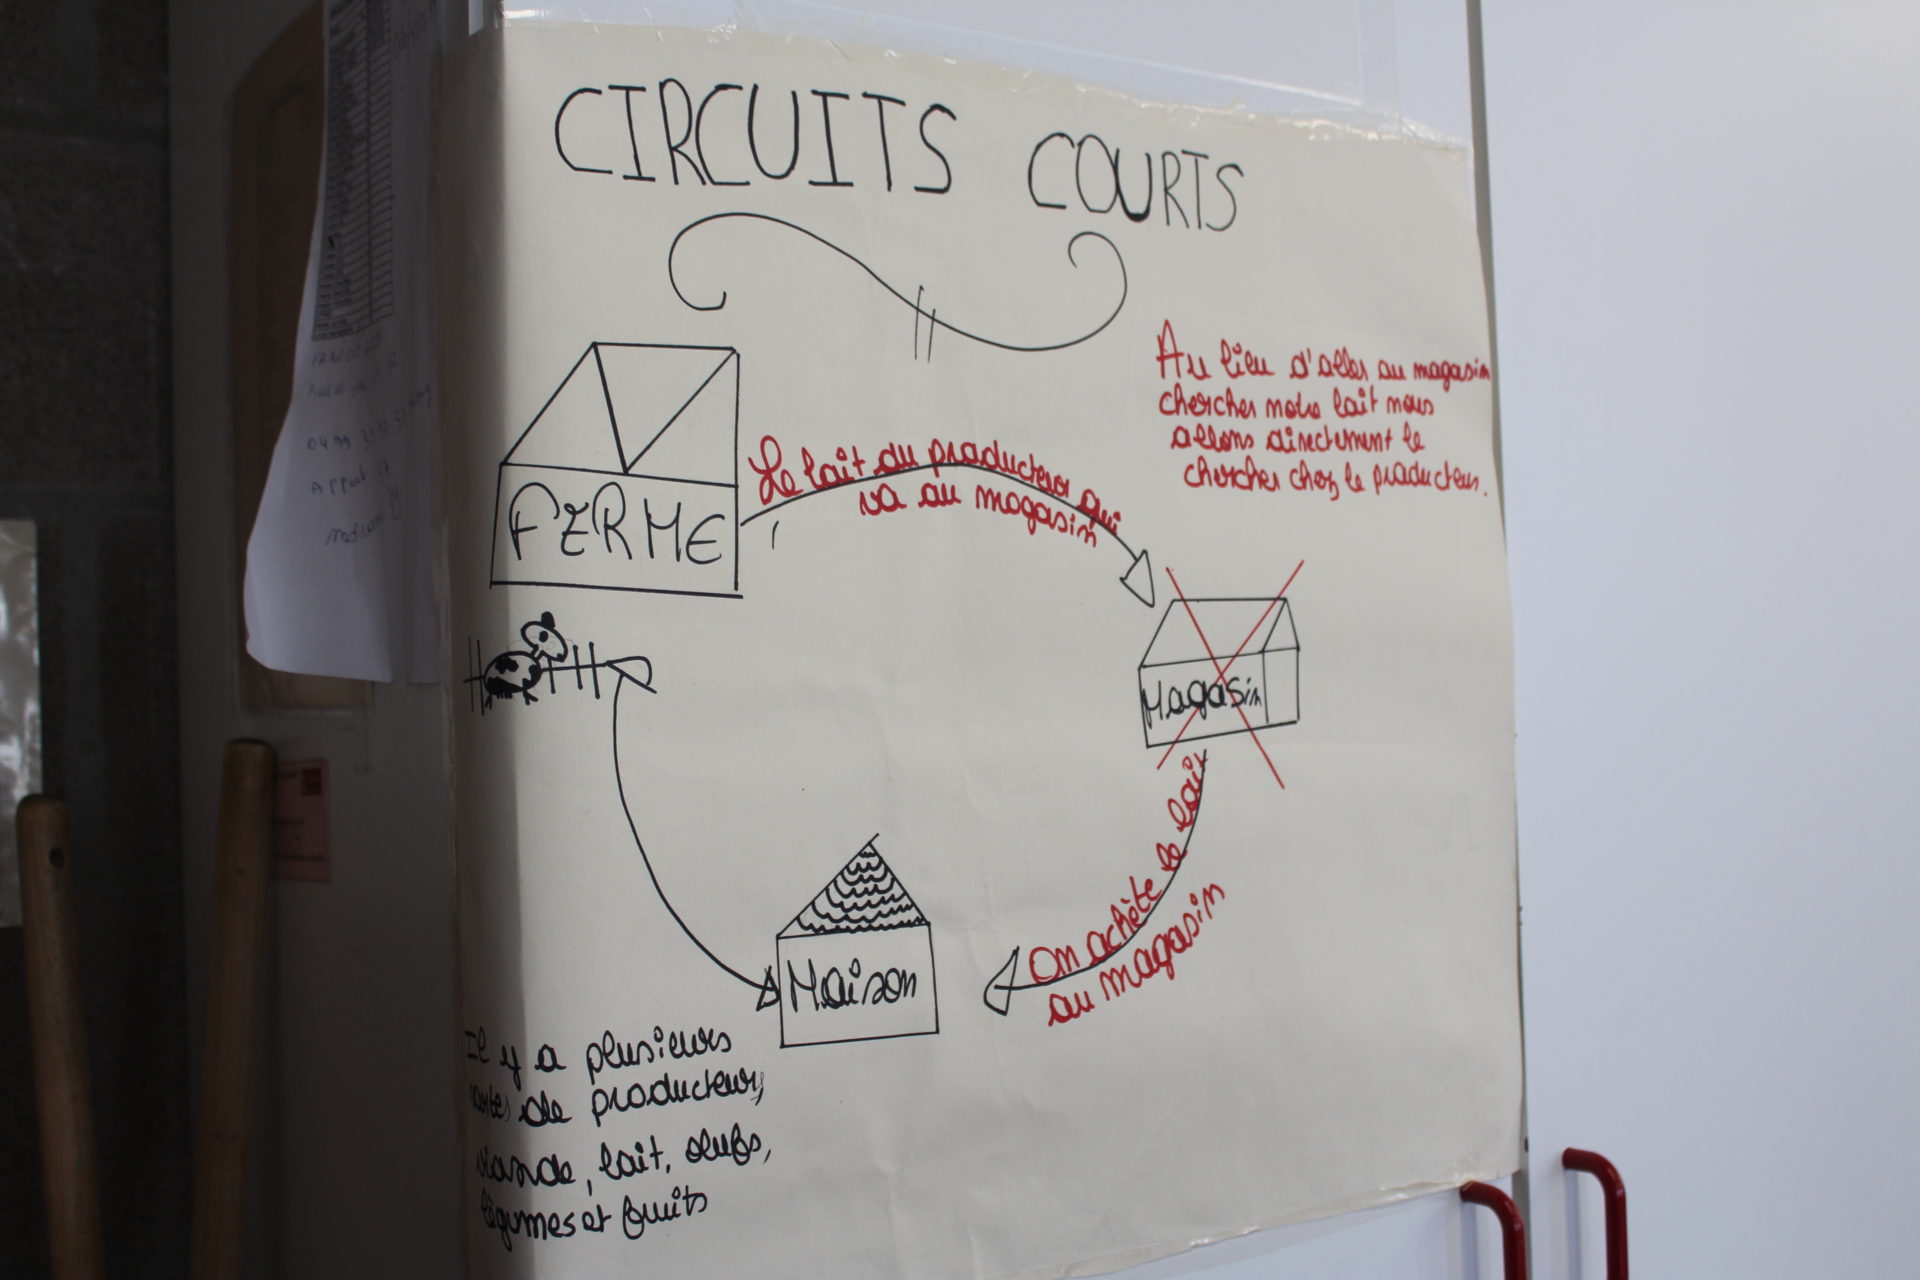 CIRCUITS COURTS
Au lieu d'aller au magasin
chercher notre lait nous
allons directement le
chercher chez le producteur.
Le lait du producteur qui
va au magasin
FERME
Magasin
On achète le lait
au magasin
Maison
Il y a plusieurs
sortes de producteurs,
viande, lait, oeufs,
légumes et fruits